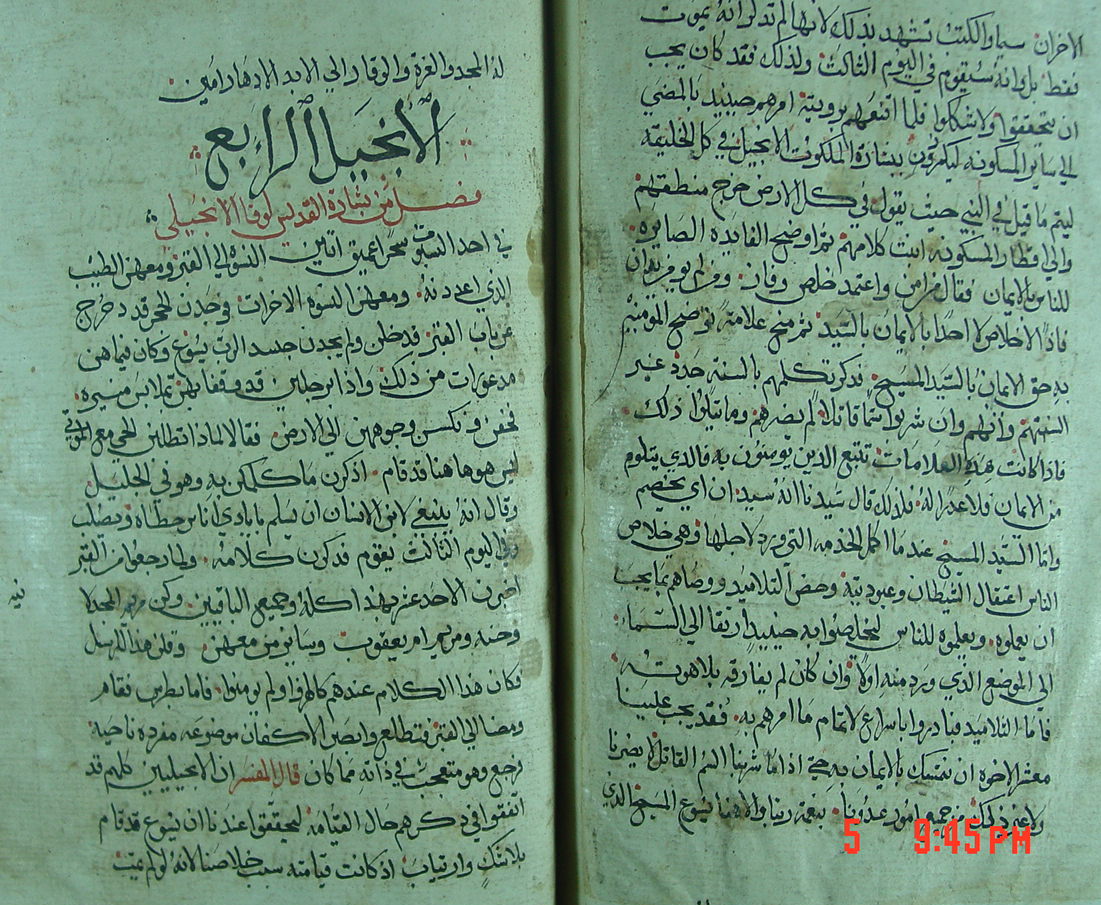 الاخران سيما والكتب تشهد بذلك لانها لم تذكر انه يموت
فقط بل وانه سيقوم في اليوم الثالث ولذلك فقد كان يجب
ان يتحققوا ولا يشكوا فلما اقنعهم برويته امرهم حينيد بالمضي
الي ساير المسكونه ليكرزون ببشارة الملكوت الانجيل في كل الخليقه
ليتم ما قيل في النبي حيث يقول في كل الارض خرج منطقهم
والي اقطار المسكونه انبث كلامهم ثم اوضح الفايدة الصايره
للناس بالايمان فقال فمن امن واعتمد خلص وفاز ومن لم يومن يدان
فاذا لا خلاص لاحد الا بالايمان بالسيد ثم منح علامة توضح المومنين
به حق الايمان بالسيد المسيح فذكر تكلمهم بالسنة جددة غير
السنتهم وانهم وان شربوا سما قاتلا لم يضرهم وما تيلوا ذلك
فاذا كانت هذه العلامات تتبع الدين يومنون به فالدي يتلوم
من الايمان فلا عدر له فلذلك قال سيدنا انه سيدان اي يخصم
واما السيد المسيح عندما اكمل الخدمه التي ورد لاجلها وهي خلاص
الناس اعتقال الشيطان وعبوديته وحض التلاميد ووصاهم بما يجب
ان يعلموه ويعلموه للناس ليخلصوا به حينيد ارتقا الي السماء
الي الموضع الدي ورد منه اولا وان كان لم يفارقه بلاهوته
فاما التلاميد فبادروا باسراع لاتمام ما امرهم به فقد يجب علينا
معشر الاخوه ان نتمسك بالايمان به حتي اذا ما شربنا السم القاتل لا يضرنا
ولا غير ذلك من جميع امور عدونا بنعمة ربنا والاهنا يسوع المسيح الدي
له المجد والعزة والوقار الي الابد الادهار امين
الانجيل الرابع
فصل من بشارة القديس لوقا الانجيلي
في احد السبوت سحرا عميق اتين النسوه الي القبر ومعهن الطيب
الذي اعددنه ومعهن النسوه الاخرات فوجدن الحجر قد دحرج
عن باب القبر فدخلن ولم يجدن جسد الرب يسوع وكان فيما هن
مدعورات من ذلك واذا برجلين قد وقفا بهن بملابس منيره
فخفن ونكسن وجوههن الي الارض فقالا لماذا تطلبن الحي مع الموتي
ليس هو هاهنا قد قام اذكرن ما كلمكن به وهو في الجليل
وقال انه ينبغي لابن الانسان ان يسلم بايادي اناس خطاه ويصلب
وفي اليوم الثالث يقوم فذكرن كلامه ولما رجعوا من القبر
اخبرن الاحد عشر بهذا كله وجميع الباقيين وكن مريم المجدلا
نيه
وحنه ومريم ام يعقوب وساير من معهن وقلن هذا للرسل
فكان هذا الكلام عندهم كالهزوا ولم يومنوا فاما بطرس فقام
ومضا الي القبر فتطلع وابصر الاكفان موضوعه مفرده ناحية
فرجع وهو متعجب في ذاته مما كان قال المفسر ان الانجيليين كلهم قد
اتفقوا في ذكرهم حال القيامه ليحققوا عندنا ان يسوع قد قام
بلا شك وارتياب اذ كانت قيامته سبب خلاصنا لانه لو لم يمت
5 9:45 PM